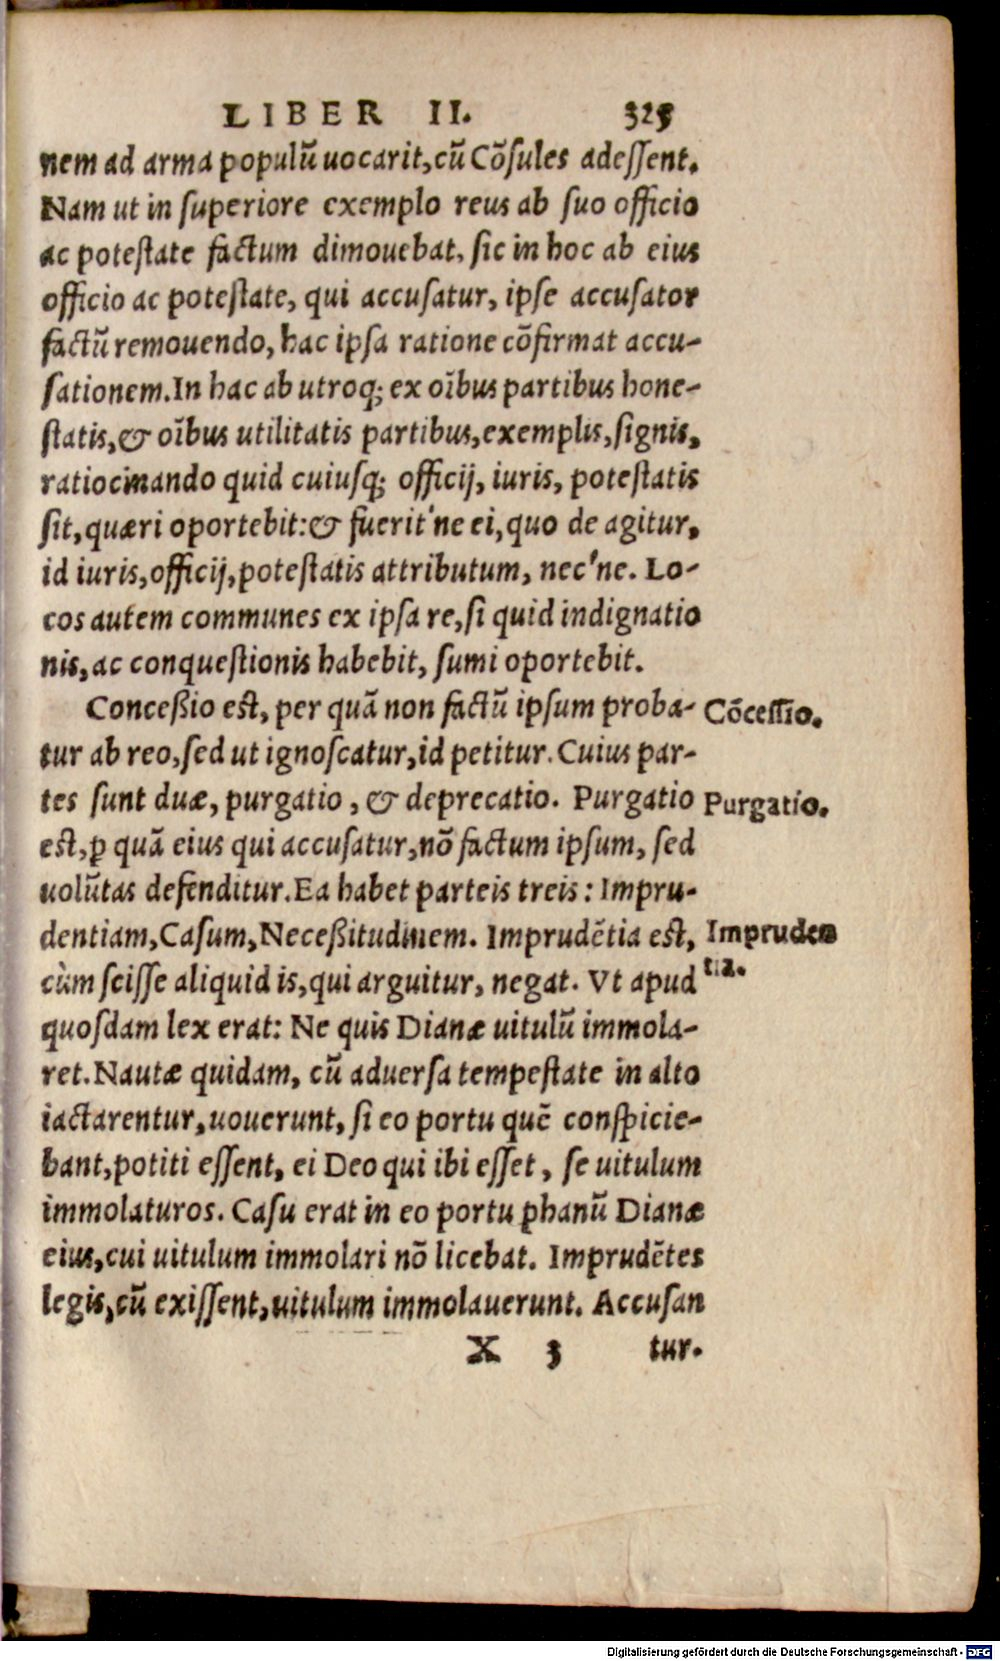 LIBER II. 325
nem ad arma populũ uocarit, cũ Cõsules adeſſent.
Nam ut in ſuperiore exemplo reus ab ſuo officio
ac poteſtate factum dimouebat, ſic in hoc ab eius
officio ac poteſtate, qui accuſatur, ipſe accuſator
factũ remouendo, hac ipſa ratione cõfirmat accu-
ſationem. In hac ab utroq; ex oĩbus partibus hone-
ſtatis, & oĩbus utilitatis partibus, exemplis, ſignis,
ratiocinando quid cuiuſq; officij, iuris, poteſtatis
ſit, quæri oportebit: & fuerit'ne ei, quo de agitur,
id iuris, officij, poteſtatis attributum, nec'ne. Lo-
cos autem communes ex ipſa re, ſi quid indignatio
nis, ac conqueſtionis habebit, ſumi oportebit.
Conceßio eſt, per quã non factũ ipſum proba-
Cõceſſio.
tur ab reo, ſed ut ignoſcatur, id petitur. Cuius par-
tes ſunt duæ, purgatio, & deprecatio. Purgatio
Purgatio.
eſt, ꝑ quã eius qui accuſatur, nõ factum ipſum, ſed
uolũtas defenditur. Ea habet parteis treis: Impru-
dentiam, Caſum, Neceßitudinem. Imprudẽtia eſt,
Impruden
cùm ſciſſe aliquid is, qui arguitur, negat. Vt apud
tia.
quoſdam lex erat: Ne quis Dianæ uitulũ immola-
ret. Nautæ quidam, cũ aduerſa tempeſtate in alto
iactarentur, uouerunt, ſi eo portu quẽ conſpicie-
bant, potiti eſſent, ei Deo qui ibi eſſet, ſe uitulum
immolaturos. Caſu erat in eo portu phanũ Dianæ
eius, cui uitulum immolari nõ licebat. Imprudẽtes
legis, cũ exiſſent, uitulum immolauerunt. Accuſan
X 3 tur.
Digitalisierung gefördert durch die Deutsche Forschungsgemeinschaft - DFG